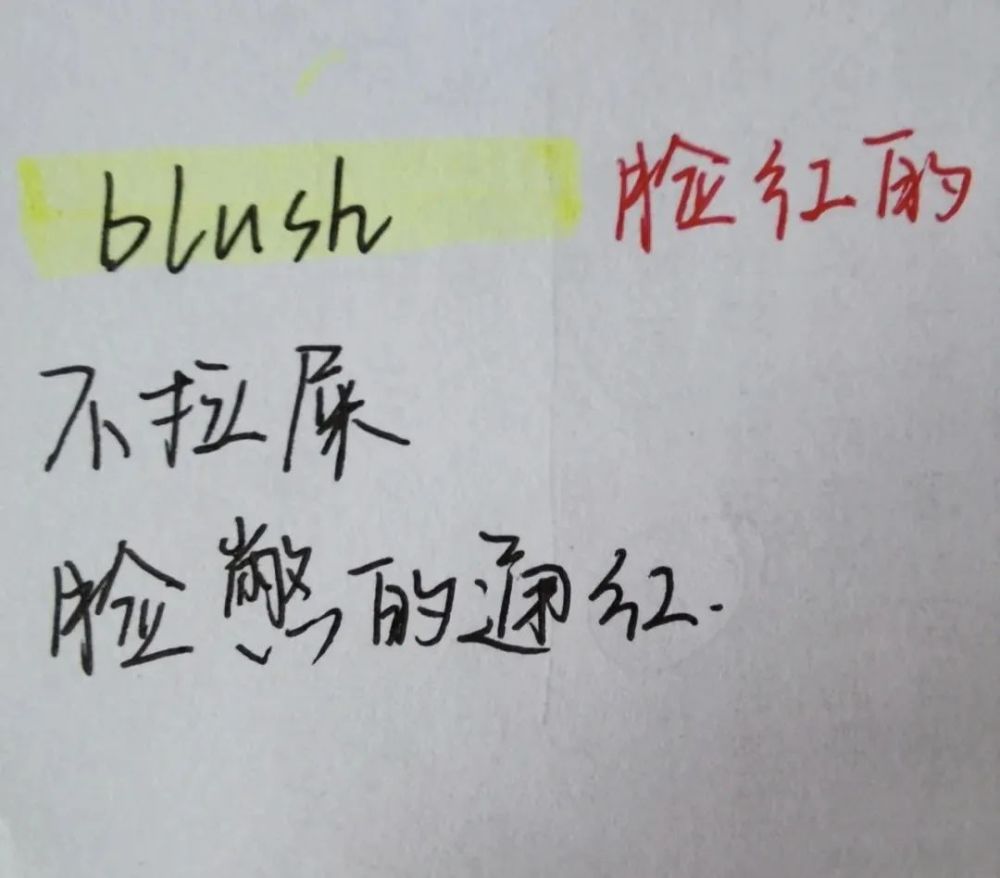 blush 脸红的
不拉屎
脸憋的通红.